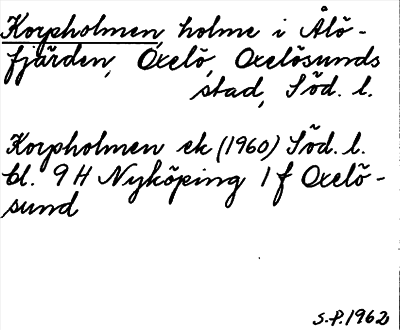 Korpholmen, holme i Ålö-
fjärden, Oxelö, Oxelösunds
stad, Söd. l.
Korpholmen ek (1960) Söd. l.
bl. 9 H Nyköping 1 f Oxelö-
sund
S.P. 1962